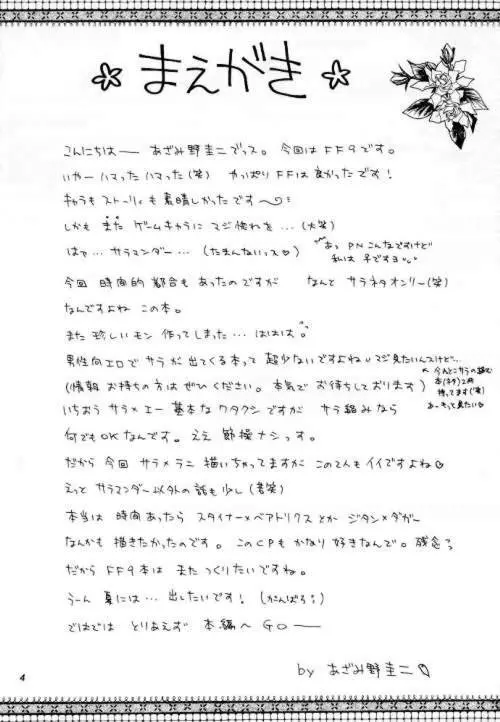 まえがき
こんにちはー あざみ野圭二でっス。今回はFF9です。
いやーハマったハマった(笑) やっぱりFFは良かったです!
キャラもストーリィも素晴しかったです〜
しかも また ゲームキャラに マジ惚れを…(大笑)
はァ… サラマンダー…(たまんないっス♡)
あっ PNこんなですけど
私は 早ですヨ
今回 時間的都合もあったのですが なんと サラネタオンリー(笑)
なんですよね この本。
また珍しいモン 作ってしまった… ははは。
男性向エロで サラが出てくる本って 超少ないですよね マジ見たいんスけど…
(情報 お持ちの方は ぜひください。本気で お待ちしております)
本(ネタ)2冊
持ってます(笑)
あーもっと見たい
いちおう サラ×エー 基本なワタクシですが サラ絡みなら
何でもOKなんです。ええ 節操ナシっす。
だから 今回 サラ×ラニ 描いちゃってますが この2人も イイですよね♡
えっと サラマンダー以外の話も少し(苦笑)
本当は 時間あったら スタイナー×ベアトリクス とか ジタン×ダガー
なんかも 描きたかったのです。このCPも かなり 好きなんで。残念
だから FF9本は また つくりたいですね。
うーん 夏には… 出したいです!(がんばろ)
ではでは とりあえず 本編へ GOー
by あざみ野圭二
4